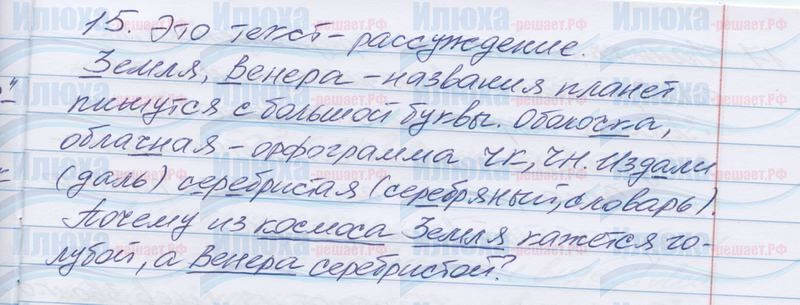 15. Это текст-рассуждение.
Земля, Венера - названия планет
пишутся с большой буквы. Оболочка,
облачная - орфограмма чк, чн. Издали
(даль) серебристая (серебряный, словарь).
Почему из космоса Земля кажется го-
лубой, а Венера серебристой?